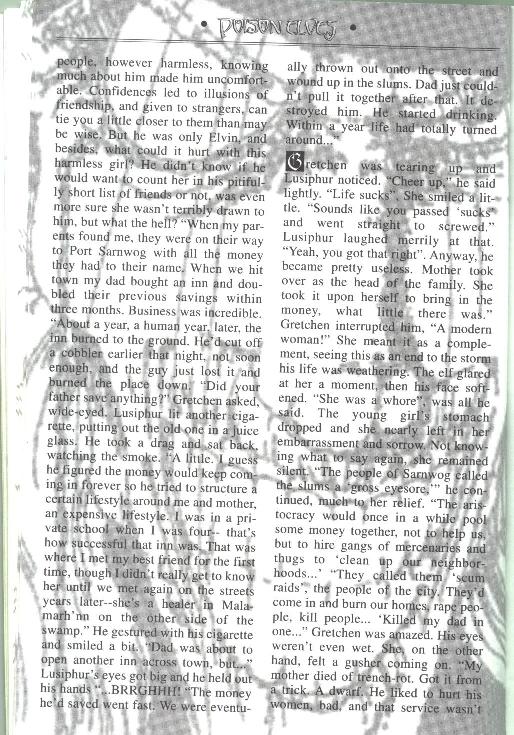 • POISON ELVES •
people, however harmless, knowing
much about him made him uncomfort-
able. Confidences led to illusions of
friendship, and given to strangers, can
tie you a little closer to them than may
be wise. But he was only Elvin, and
besides, what could it hurt with this
harmless girl? He didn't know if he
would want to count her in his pitiful-
ly short list of friends or not, was even
more sure she wasn't terribly drawn to
him, but what the hell? "When my par-
ents found me, they were on their way
to Port Sarnwog with all the money
they had to their name. When we hit
town my dad bought an inn and dou-
bled their previous savings within
three months. Business was incredible.
"About a year, a human year, later, the
inn burned to the ground. He'd cut off
a cobbler earlier that night, not soon
enough, and the guy just lost it and
burned the place down. "Did your
father save anything?" Gretchen asked,
wide-eyed. Lusiphur lit another ciga-
rette, putting out the old one in a juice
glass. He took a drag and sat back,
watching the smoke. "A little. I guess
he figured the money would keep com-
ing in forever so he tried to structure a
certain lifestyle around me and mother,
an expensive lifestyle. I was in a pri-
vate school when I was four-- that's
how successful that inn was. That was
where I met my best friend for the first
time, though I didn't really get to know
her until we met again on the streets
years later--she's a healer in Mala-
marh'nn on the other side of the
swamp." He gestured with his cigarette
and smiled a bit. "Dad was about to
open another inn across town, but..."
Lusiphur's eyes got big and he held out
his hands "...BRRGHHH! "The money
he'd saved went fast. We were eventu-
ally thrown out onto the street and
wound up in the slums. Dad just could-
n't pull it together after that. It de-
stroyed him. He started drinking.
Within a year life had totally turned
around..."
Gretchen was tearing up and
Lusiphur noticed. "Cheer up," he said
lightly. "Life sucks". She smiled a lit-
tle. "Sounds like you passed 'sucks'
and went straight to screwed."
Lusiphur laughed merrily at that.
"Yeah, you got that right". Anyway, he
became pretty useless. Mother took
over as the head of the family. She
took it upon herself to bring in the
money, what little there was."
Gretchen interrupted him, "A modern
woman!" She meant it as a comple-
ment, seeing this as an end to the storm
his life was weathering. The elf glared
at her a moment, then his face soft-
ened. "She was a whore", was all he
said. The young girl's stomach
dropped and she nearly left in her
embarrassment and sorrow. Not know-
ing what to say again, she remained
silent. "The people of Sarnwog called
the slums a 'gross eyesore,'" he con-
tinued, much to her relief. "The aris-
tocracy would once in a while pool
some money together, not to help us,
but to hire gangs of mercenaries and
thugs to 'clean up our neighbor-
hoods...' "They called them 'scum
raids', the people of the city. They'd
come in and burn our homes, rape peo-
ple, kill people... 'Killed my dad in
one..." Gretchen was amazed. His eyes
weren't even wet. She, on the other
hand, felt a gusher coming on. "My
mother died of trench-rot. Got it from
a trick. A dwarf. He liked to hurt his
women, bad, and that service wasn't